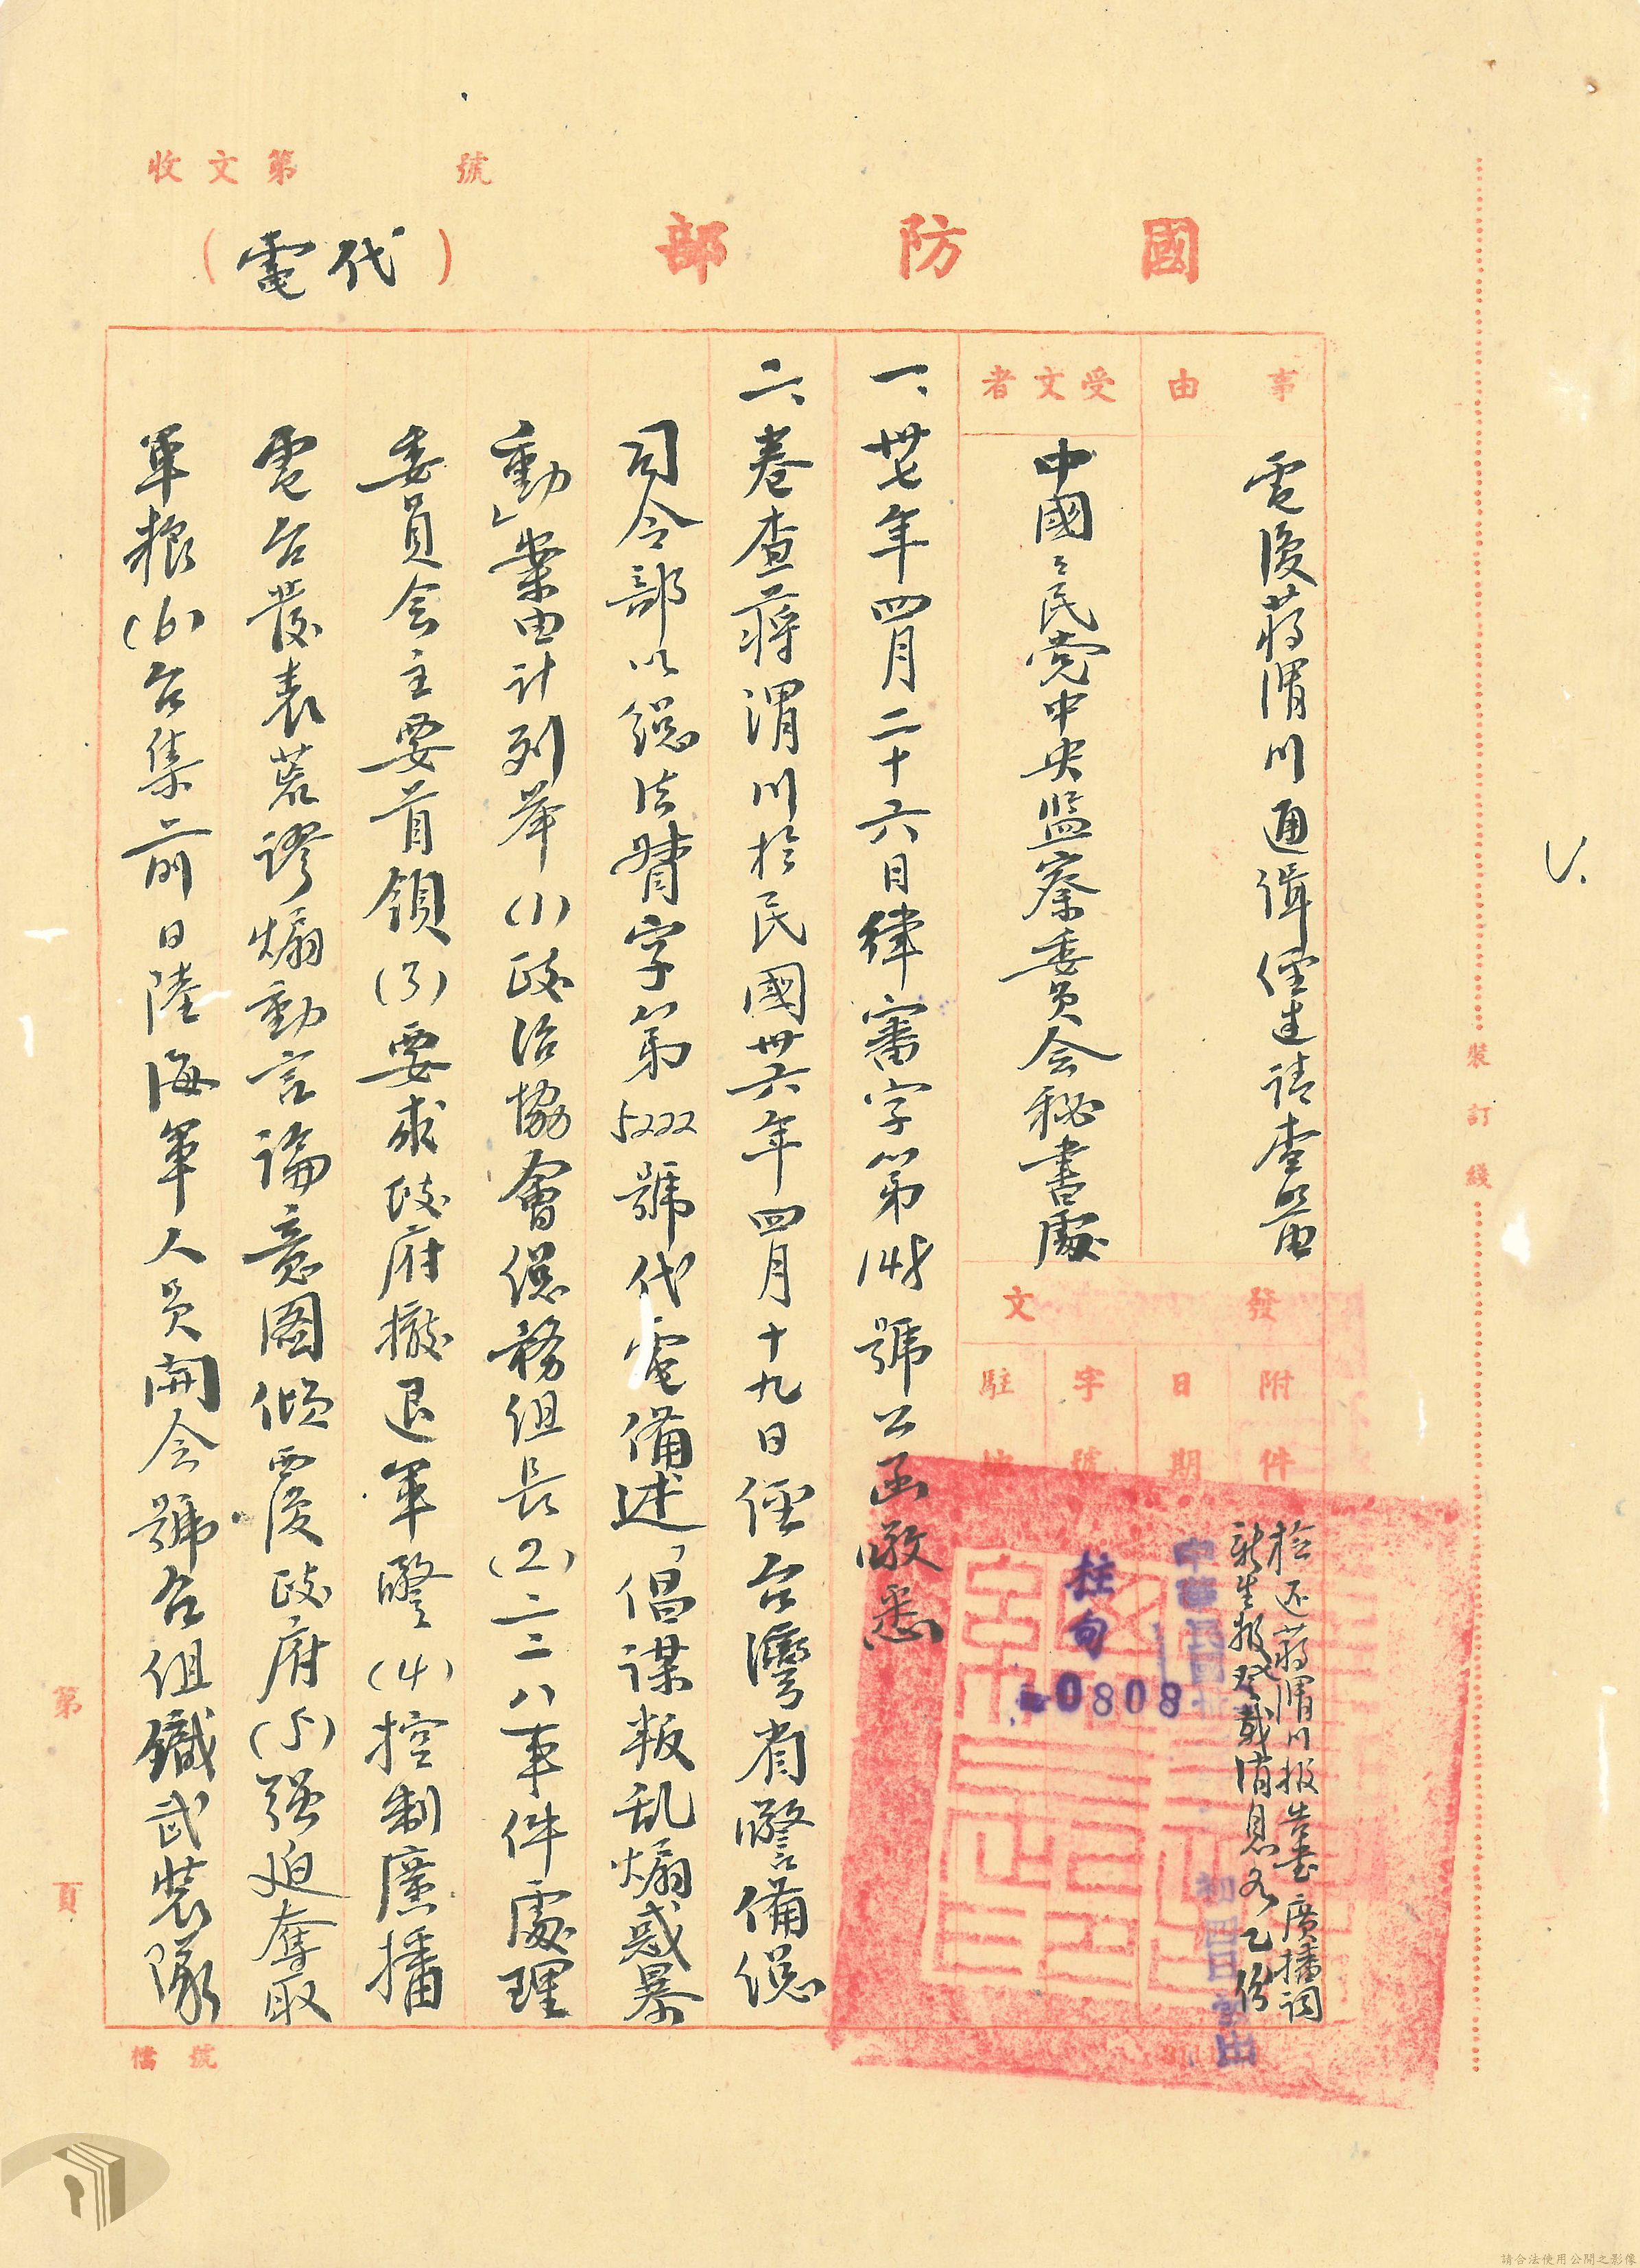 收文第 號
國防部
（代電）
事由
電復蔣渭川通緝經過請查照由
受文者
中國々民党中央监察委員会秘書處
發文
附件
檢还蔣渭川报告書廣播詞
新生报登載消息各乙份
日期
中華民國
初四日
字號
柱旬
0808
駐地
一、卅七年四月二十六日律審字第148號公函敬悉
二、卷查蔣渭川於民國卅六年四月十九日經台灣省警備總
司令部以總法督字第5222號代電備述「倡謀叛乱煽惑暴
動」案由計列举(1)政治協會總務組長(2)二二八事件處理
委員会主要首領(3)要求政府撤退軍警(4)控制廣播
電台發表荒謬煽動言論意圖傾覆政府(5)强迫奪取
軍粮(6)台集前日陸海軍人員開会號召組織武装隊
裝訂綫
第 頁
檔號
請合法使用公開之影像